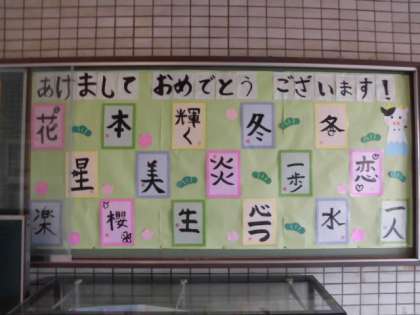 あけまして おめでとう ございます!
花 本 輝く 冬 冬
星 美 炎 一歩 恋
楽 櫻 生 心 水 一人